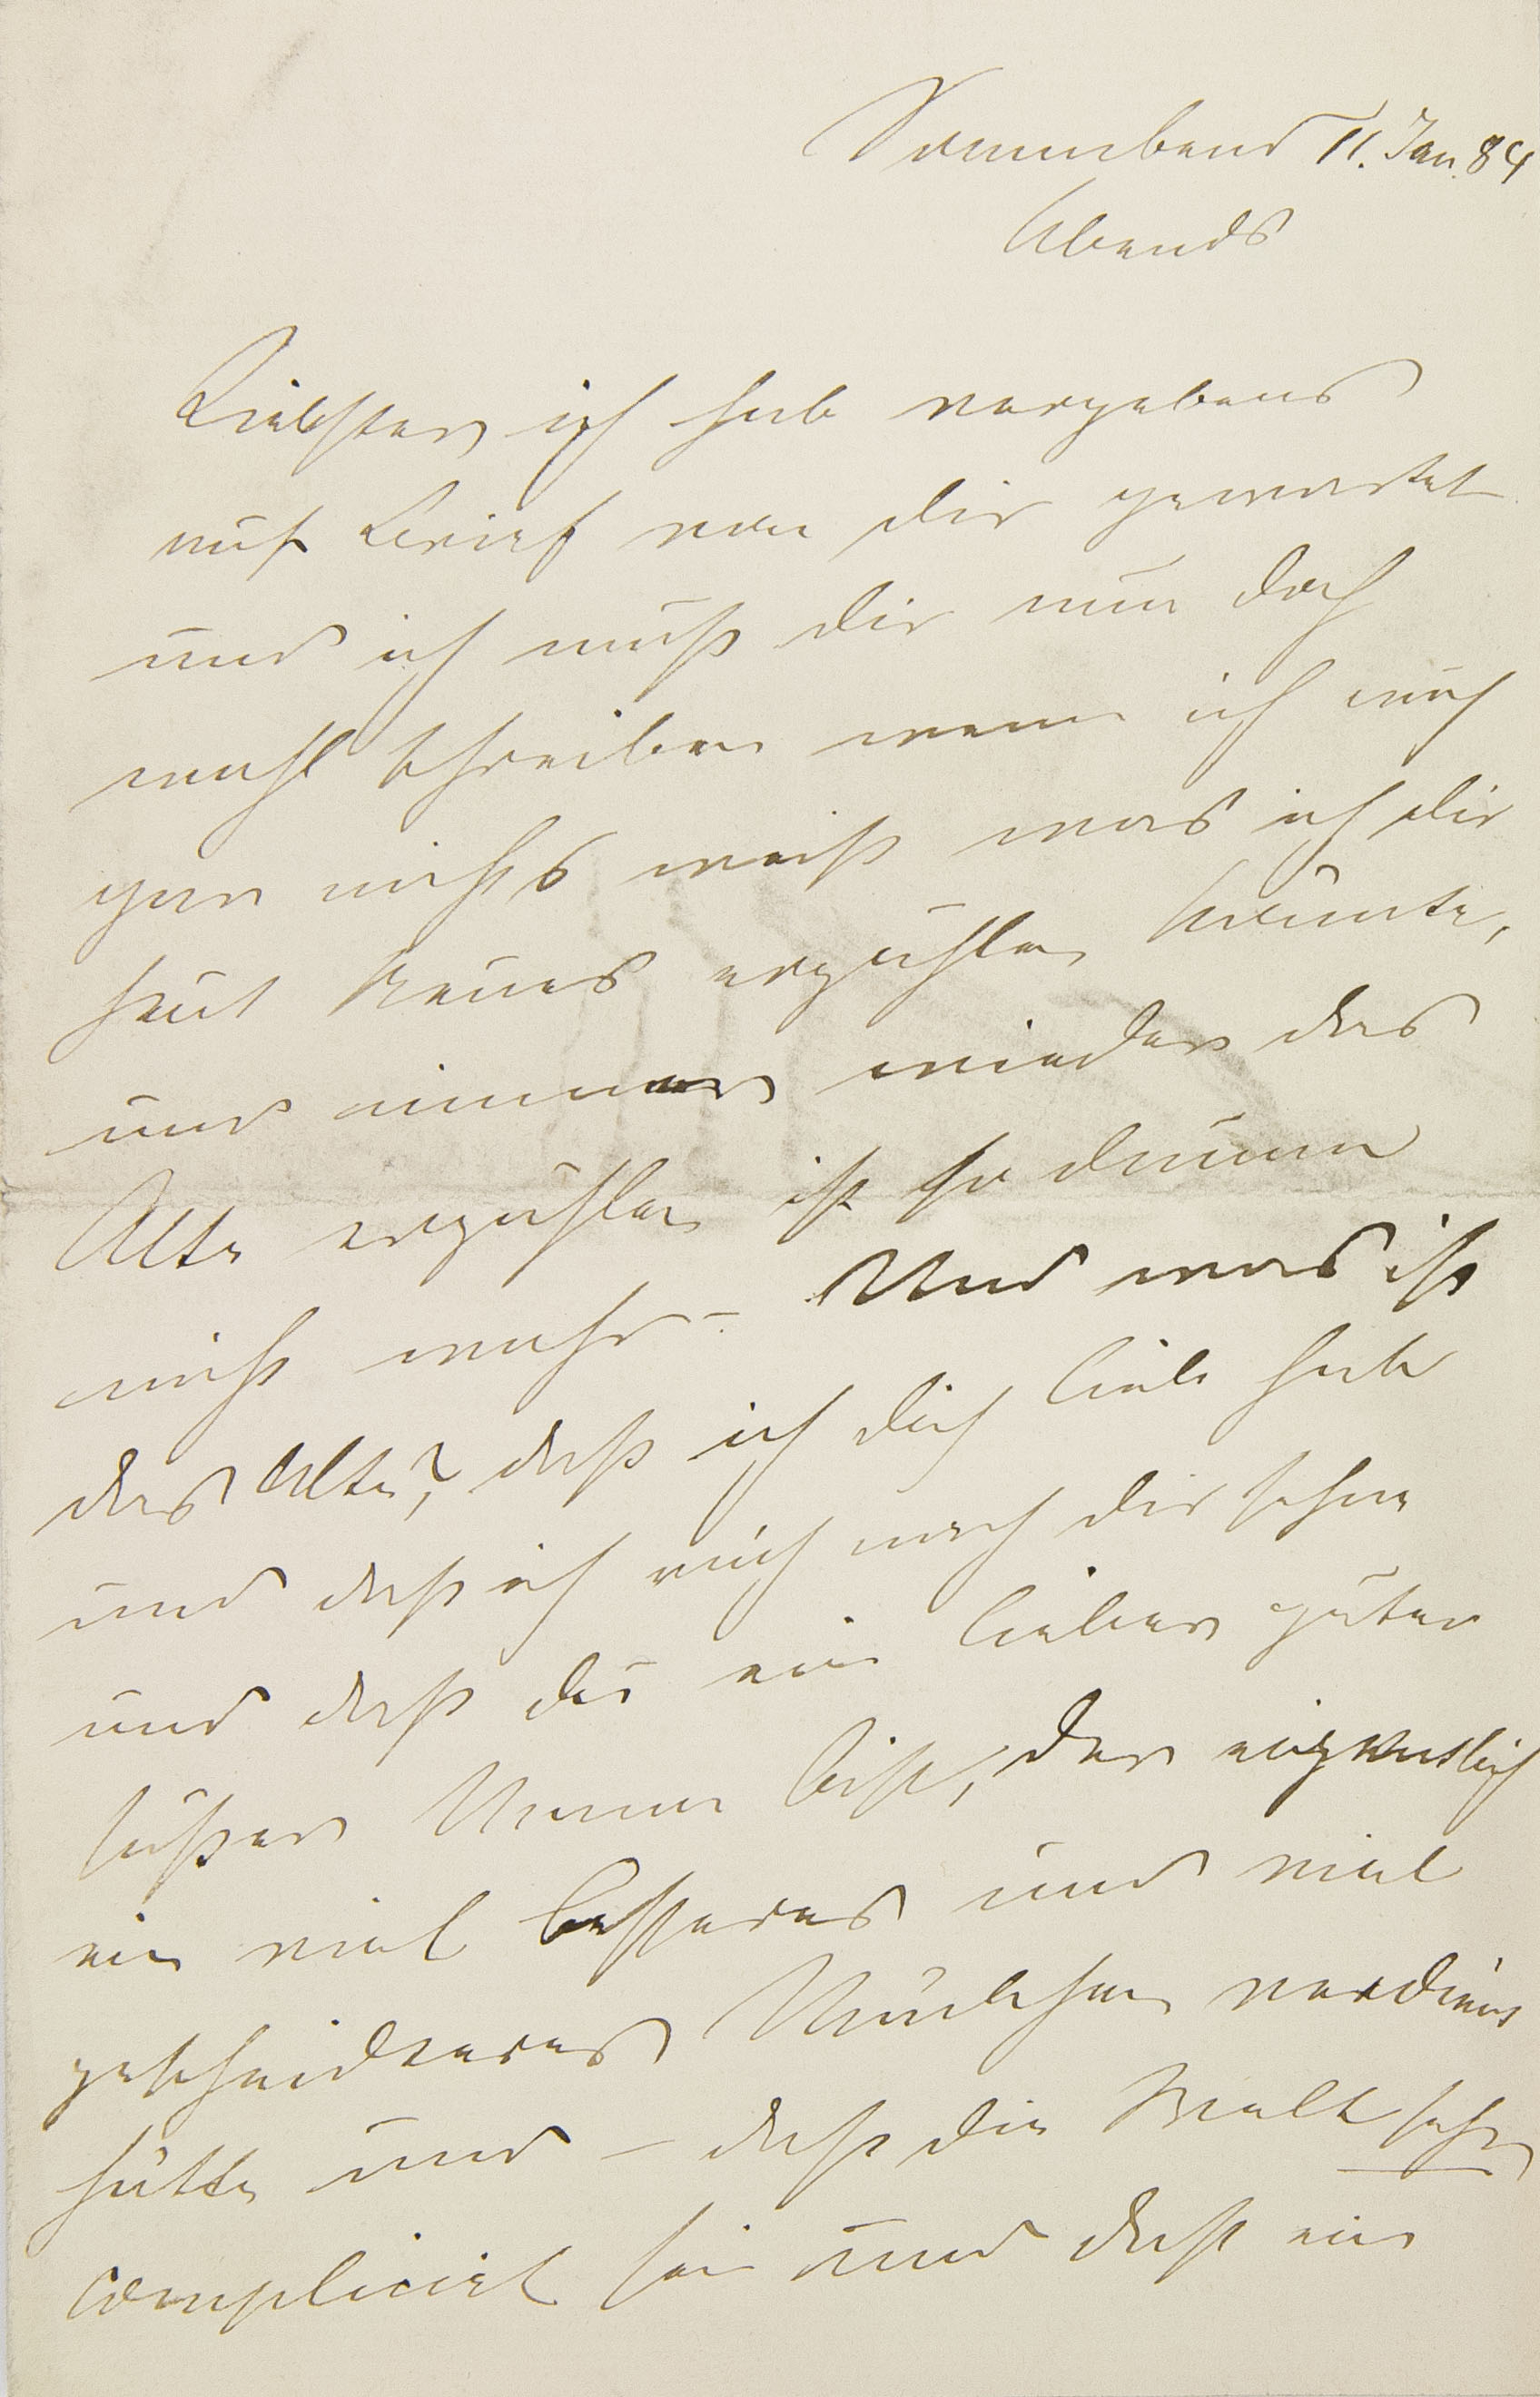 Sonnabend 11. Jan. 84
Abends
Liebster ich hab vergebens
auf Brief von dir gewartet
und ich muß dir nun doch
wohl schreiben wenn ich auch
gar nichts weiß was ich dir
heut Neues erzählen könnte,
und immer wieder das
Alte erzählen ist so dumm
nicht wahr – Und was ist
das Alte? daß ich dich lieb hab
und daß ich mich nach dir sehne
und daß du ein lieber guter
süßer Mann bist, der eigentlich
ein viel besseres und viel
gescheidteres Mädchen verdient
hätte und – daß die Welt sehr
complicirt sei und daß ein